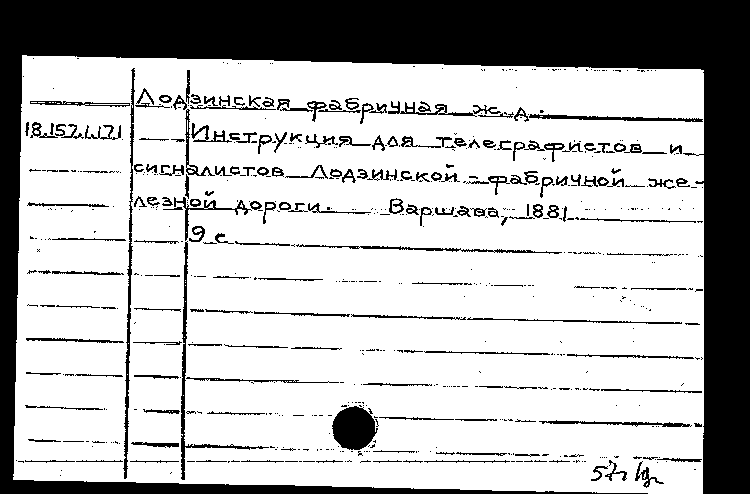 Лодзинская фабричная ж. д.
18.157.1.171 Инструкция для телеграфистов и
сигналистов Лодзинской-фабричной же-
лезной дороги. Варшава, 1881
9 с